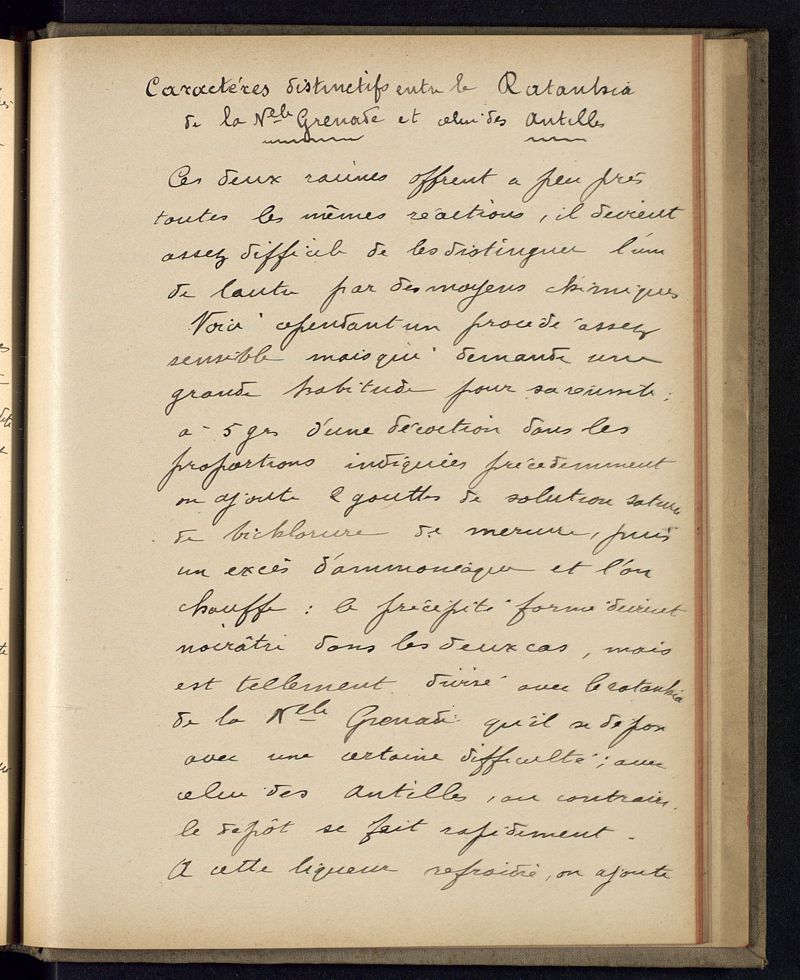 Caractéres distinctifs entre le Ratanhia
de la Nelle Grenade et celui des Antilles
Ces deux racines offrent a peu près
toutes les mêmes réactions, il devient
assez difficile de les distinguer l'un
de l'autre par des moyens chimiques
Voici cependant un procédé assez
sensible mais qui demande une
grande habitude pour sa réussite :
a 5 grs d'une décoction dans les
proportions indiquées précédemment
on ajoute 2 gouttes de solution saturée
de bichlorure de mercure, puis
un excès d'ammoniaque et l'on
chauffe : le précipité formé devient
noirâtre dans les deux cas, mais
est tellement divisé avec le ratanhia
de la Nelle Grenade qu'il se dépose
avec une certaine difficulté ; avec
celui des Antilles, au contraire,
le dépôt se fait rapidement.
A cette liqueur refroidie, on ajoute